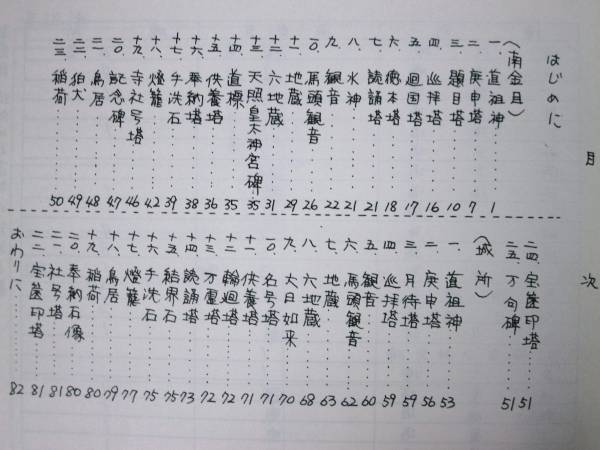 目次
はじめに
(南金目)
一、道祖神……1
二、庚申塔……7
三、題目塔……10
四、巡拝塔……16
五、廻国塔……17
六、徳本塔……18
七、読誦塔……21
八、水神……21
九、観音……22
一〇、馬頭観音……26
十一、地蔵……29
十二、六地蔵……31
十三、天照皇大神宮碑……35
十四、道標……35
十五、供養塔……36
十六、奉納塔……38
十七、手洗石……39
十八、燈籠……42
十九、寺社号塔……46
二〇、記念碑……47
二一、鳥居……48
二二、狛犬……49
二三、稲荷……50
二四、宝篋印塔……51
二五、万句碑……51
(城所)
一、道祖神……53
二、庚申塔……56
三、月待塔……59
四、巡拝塔……59
五、観音……60
六、馬頭観音……62
七、地蔵……63
八、六地蔵……68
九、大日如来……70
一〇、名号塔……71
十一、供養塔……71
十二、輪廻塔……72
十三、万霊塔……72
十四、読誦塔……73
十五、結界石……75
十六、手洗石……75
十七、燈籠……77
十八、鳥居……79
十九、稲荷……80
二〇、奉納石像……80
二一、社号塔……81
二二、宝篋印塔……81
おわりに……82